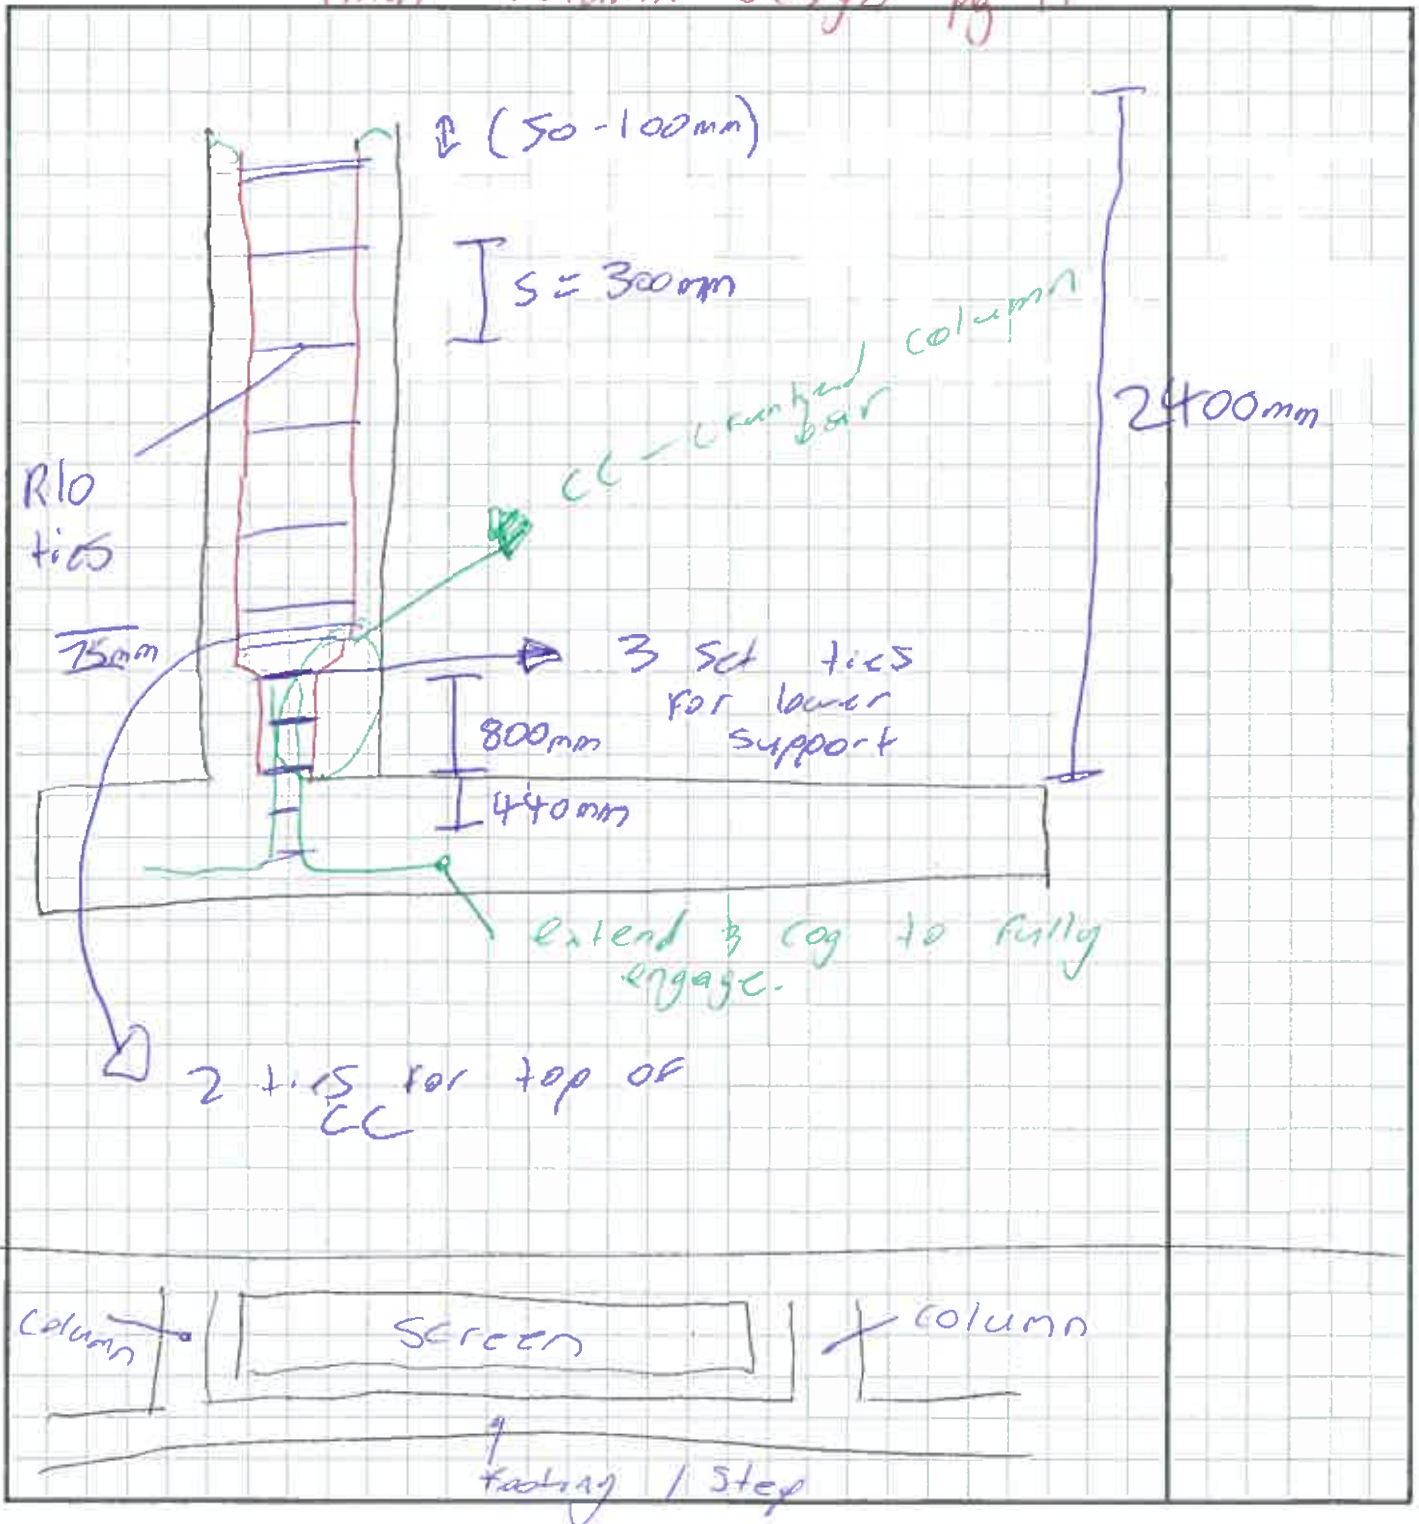 column design pg
(50-100mm)
S = 300mm
CC - cranked column
bar
2400mm
R10
ties
75mm
3 set ties
for lower
support
800mm
440mm
extend & cog to fully
engage.
2 ties for top of
CC
column
Screen
column
footing / Step